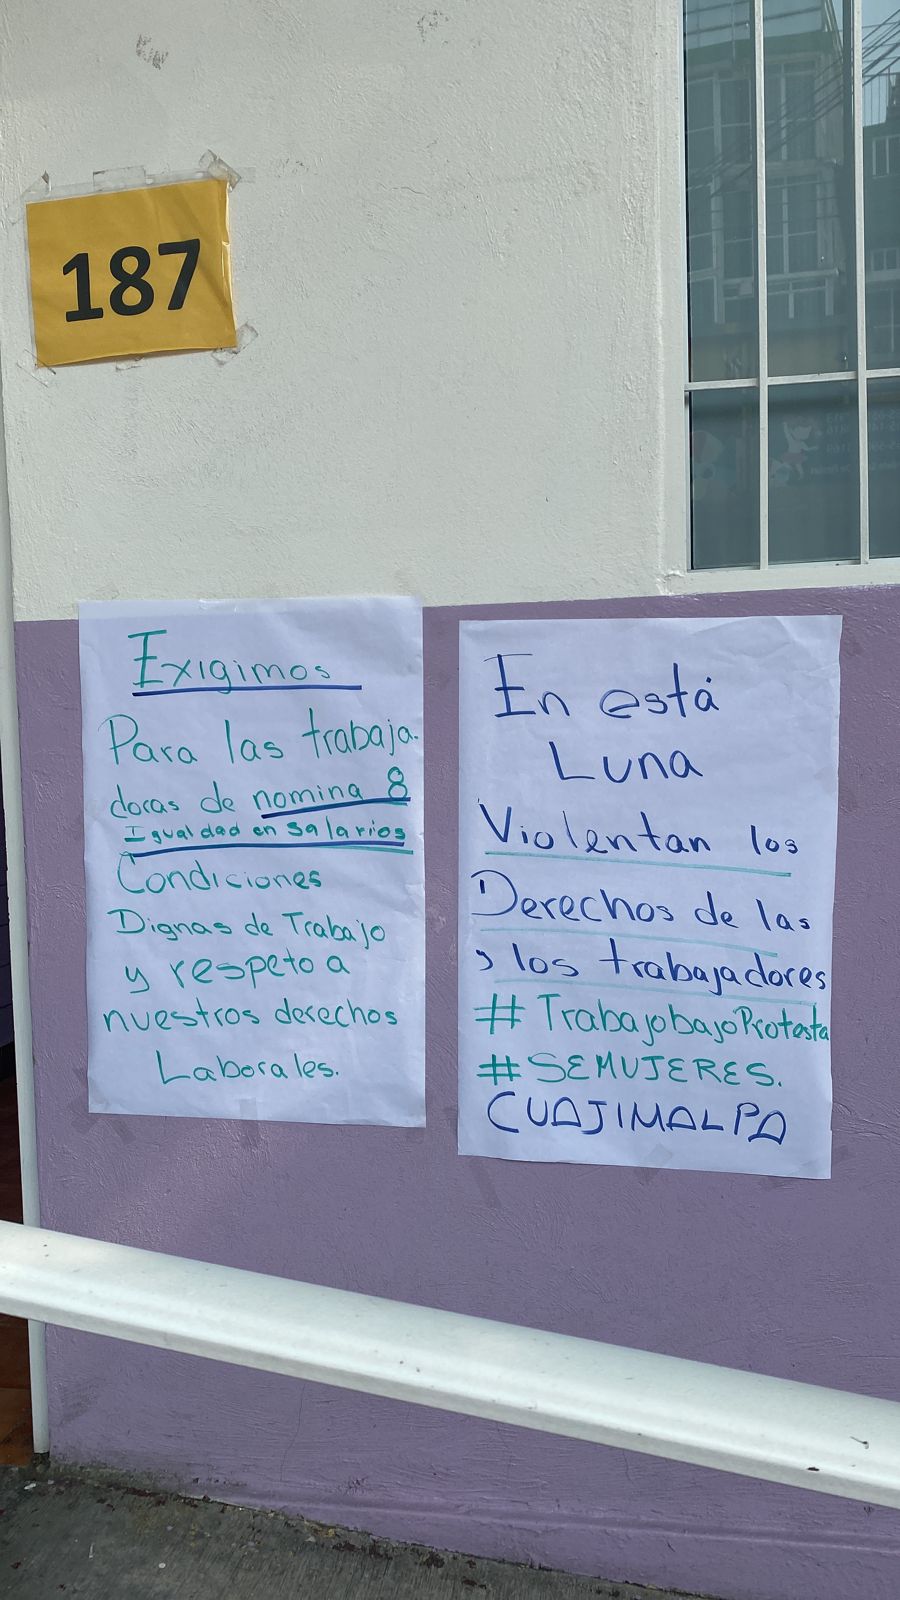 187
Exigimos
Para las trabaja-
doras de nomina 8
Igualdad en Salarios
Condiciones
Dignas de Trabajo
y respeto a
nuestros derechos
Laborales.
En está
Luna
Violentan los
Derechos de las
y los trabajadores
#TrabajobajoProtesta
#SEMUJERES.
CUAJIMALPA